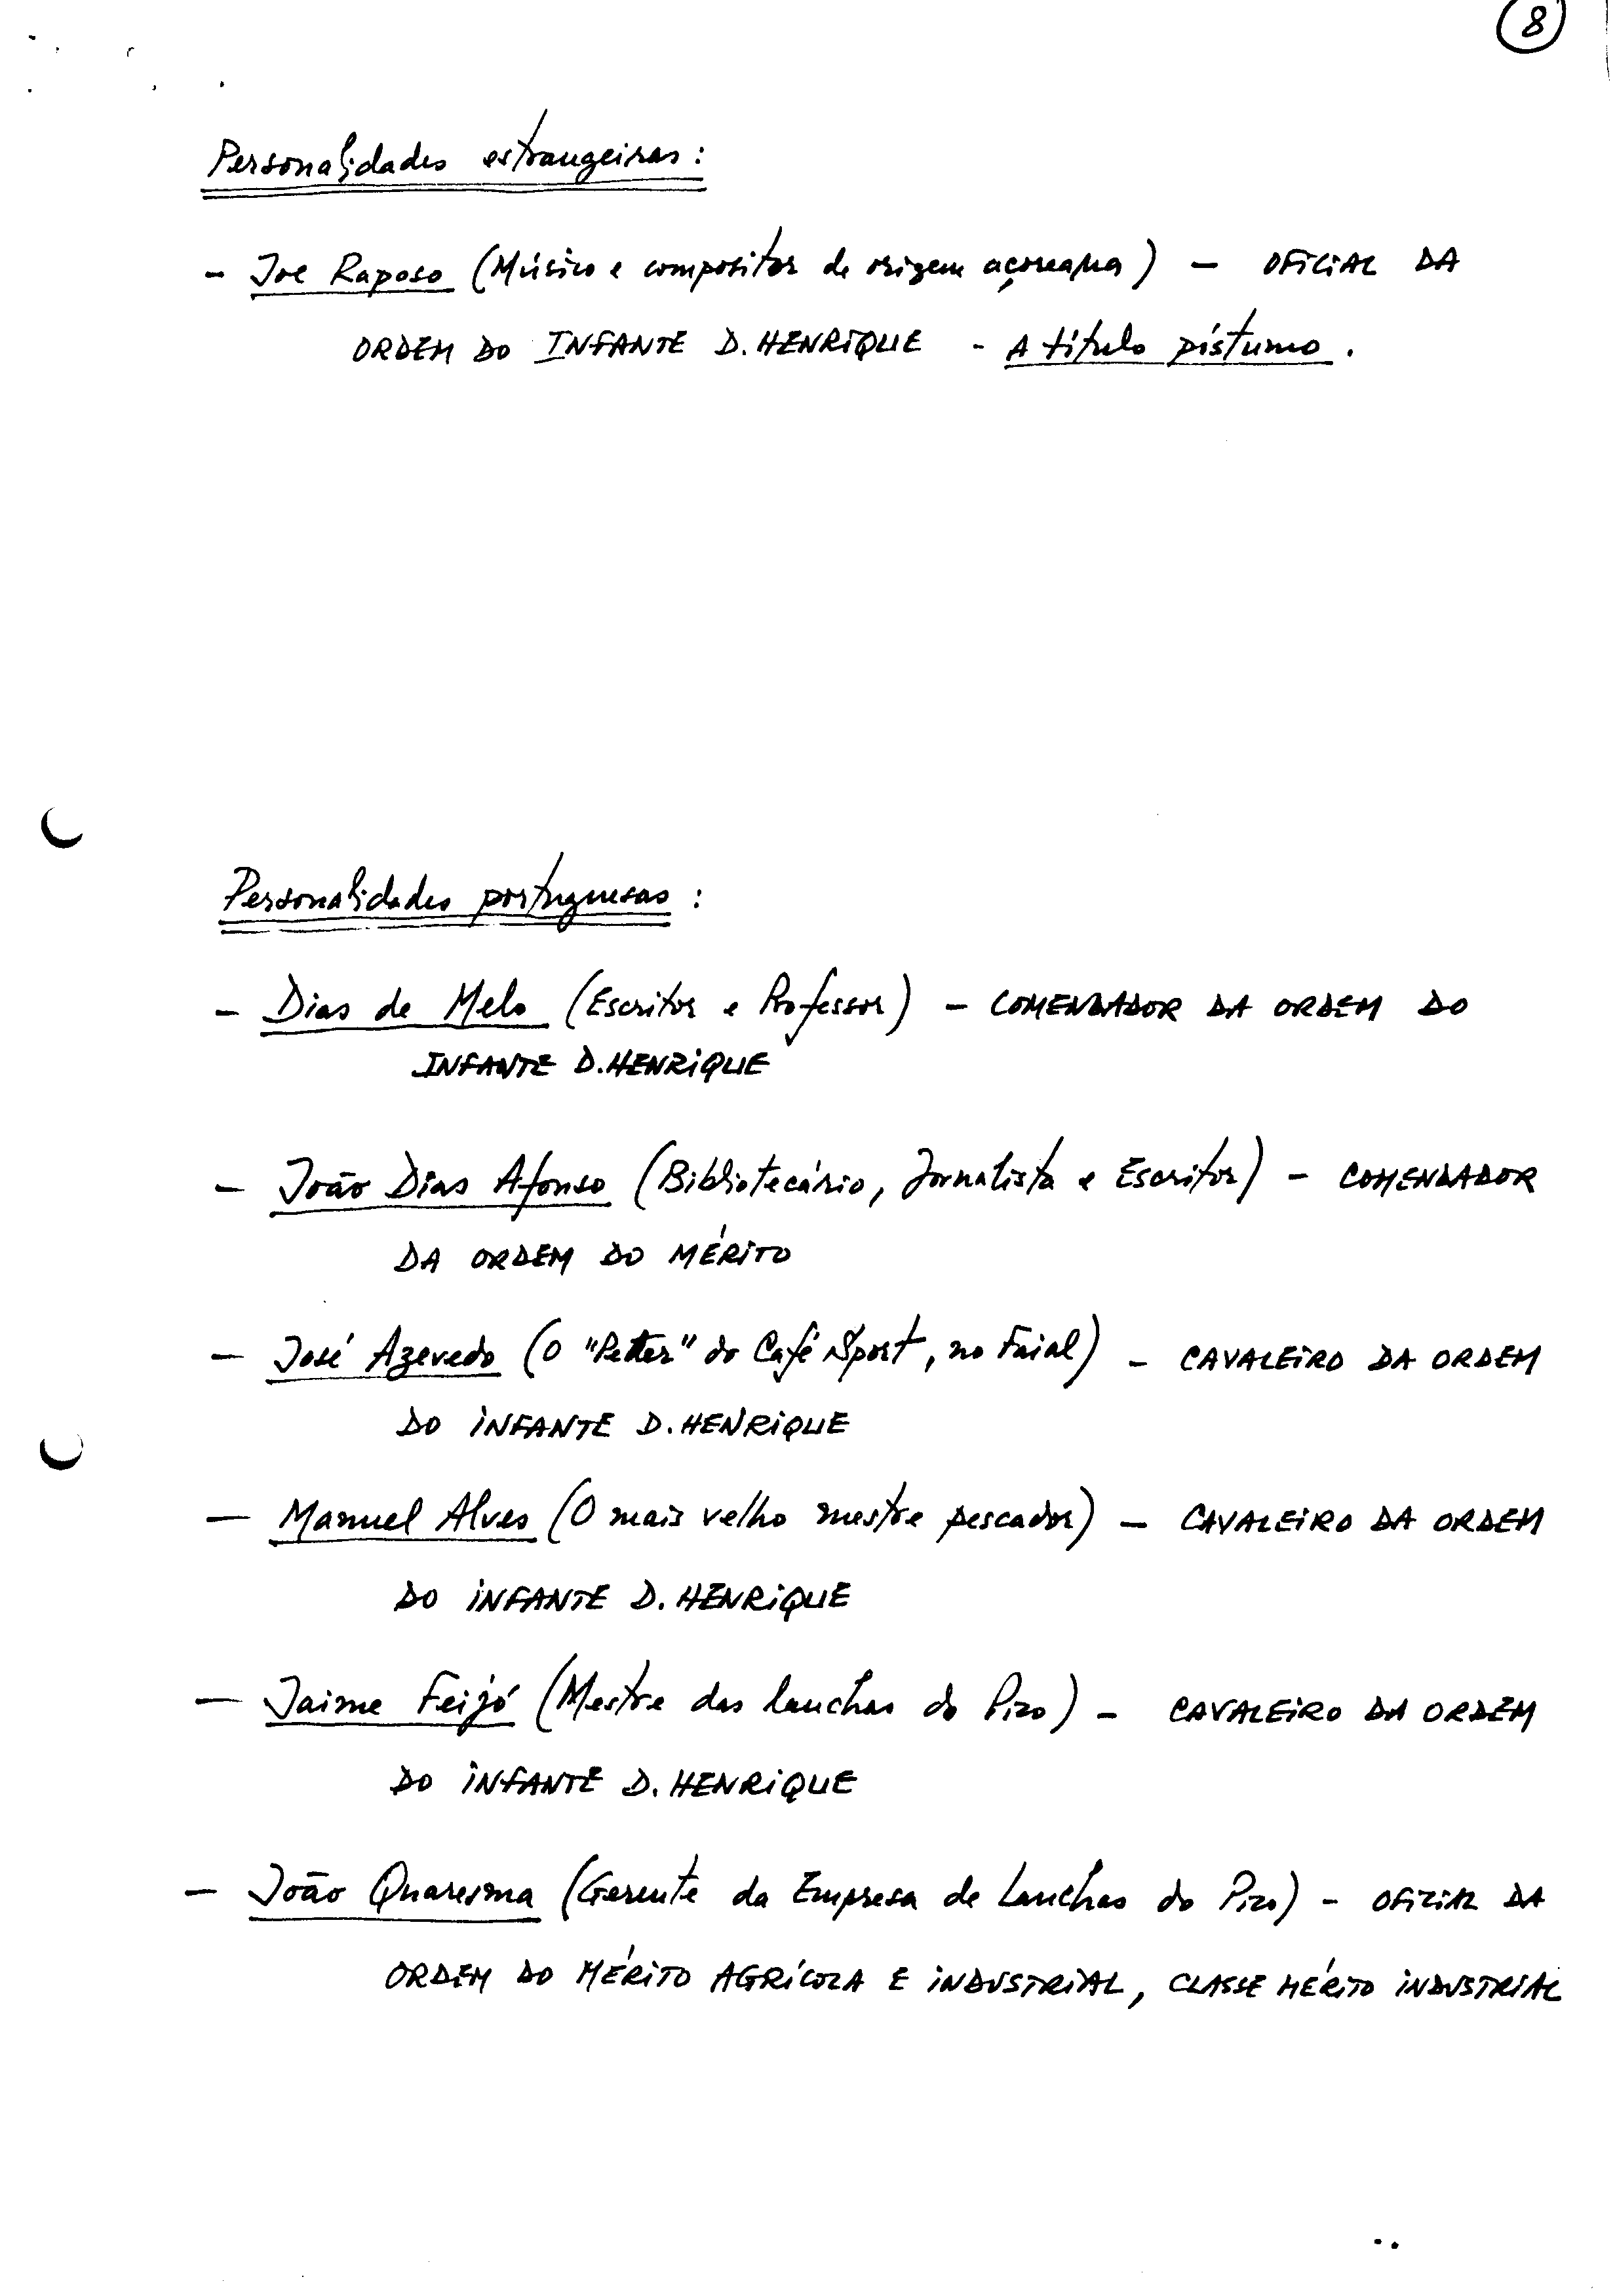 8
Personalidades estrangeiras:
- Joe Raposo (Músico e compositor de origem açoreana) - OFICIAL DA
ORDEM DO INFANTE D. HENRIQUE - A título póstumo.
Personalidades portuguesas:
- Dias de Melo (Escritor e Professor) - COMENDADOR DA ORDEM DO
INFANTE D. HENRIQUE
- João Dias Afonso (Bibliotecário, Jornalista e Escritor) - COMENDADOR
DA ORDEM DO MÉRITO
- José Azevedo (O "Petter" do Café Sport, no Faial) - CAVALEIRO DA ORDEM
DO INFANTE D. HENRIQUE
- Manuel Alves (O mais velho mestre pescador) - CAVALEIRO DA ORDEM
DO INFANTE D. HENRIQUE
- Jaime Feijó (Mestre das lanchas do Pico) - CAVALEIRO DA ORDEM
DO INFANTE D. HENRIQUE
- João Quaresma (Gerente da Empresa de Lanchas do Pico) - OFICIAL DA
ORDEM DO MÉRITO AGRÍCOLA E INDUSTRIAL, CLASSE MÉRITO INDUSTRIAL